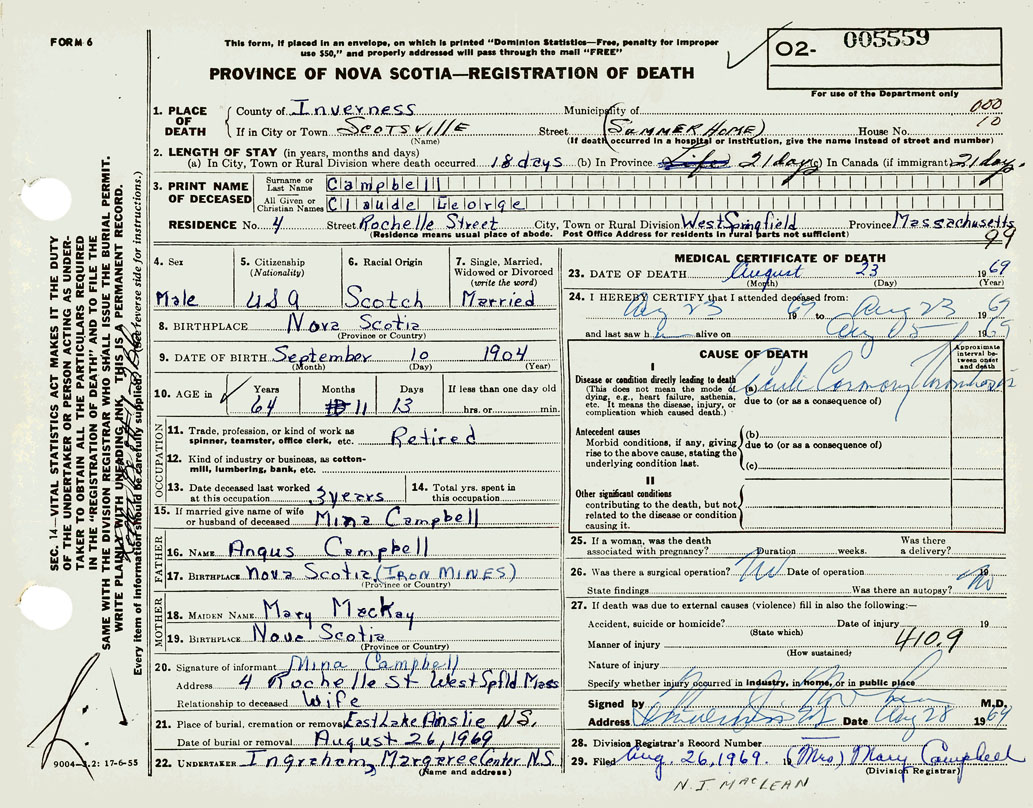 FORM 6
This form, if placed in an envelope, on which is printed "Dominion Statistics—Free, penalty for improper
use $50," and properly addressed will pass through the mail "FREE"
PROVINCE OF NOVA SCOTIA—REGISTRATION OF DEATH
O2- 005559
For use of the Department only
000
10
1. PLACE OF DEATH
County of Inverness Municipality of
If in City or Town Scotsville Street (Summer Home) House No.
(Name) (If death occurred in a hospital or institution, give the name instead of street and number)
2. LENGTH OF STAY (in years, months and days)
(a) In City, Town or Rural Division where death occurred 18 days (b) In Province Life 21 days (c) In Canada (if immigrant) 21 days
3. PRINT NAME OF DECEASED
Surname or Last Name Campbell
All Given or Christian Names Claude George
RESIDENCE No. 4 Street Rochelle Street City, Town or Rural Division West Springfield Province Massachusetts
(Residence means usual place of abode. Post Office Address for residents in rural parts not sufficient)
99
4. Sex
Male
5. Citizenship
(Nationality)
USA
6. Racial Origin
Scotch
7. Single, Married,
Widowed or Divorced
(write the word)
Married
8. BIRTHPLACE Nova Scotia
(Province or Country)
9. DATE OF BIRTH September 10 1904
(Month) (Day) (Year)
10. AGE in
Years Months Days If less than one day old
64 11 13 hrs. or min.
OCCUPATION
11. Trade, profession, or kind of work as
spinner, teamster, office clerk, etc. Retired
12. Kind of industry or business, as cotton-
mill, lumbering, bank, etc.
13. Date deceased last worked
at this occupation 3 years
14. Total yrs. spent in
this occupation
15. If married give name of wife
or husband of deceased Mina Campbell
FATHER
16. NAME Angus Campbell
17. BIRTHPLACE Nova Scotia (IRON MINES)
(Province or Country)
MOTHER
18. MAIDEN NAME Mary MacKay
19. BIRTHPLACE Nova Scotia
(Province or Country)
20. Signature of informant Mina Campbell
Address 4 Rochelle St West Spfld Mass
Relationship to deceased Wife
21. Place of burial, cremation or removal East Lake Ainslie N.S.
Date of burial or removal August 26, 1969
22. UNDERTAKER Ingraham, Margaree Center N.S.
(Name and address)
MEDICAL CERTIFICATE OF DEATH
23. DATE OF DEATH August 23 1969
(Month) (Day) (Year)
24. I HEREBY CERTIFY that I attended deceased from:
Aug 23 1969 to Aug 23 1969
and last saw him alive on Aug 1969
CAUSE OF DEATH
Approximate interval between onset and death
I
Disease or condition directly leading to death
(This does not mean the mode of
dying, e.g., heart failure, asthenia,
etc. It means the disease, injury, or
complication which caused death.)
(a) Acute Coronary Thrombosis
due to (or as a consequence of)
Antecedent causes
Morbid conditions, if any, giving
rise to the above cause, stating the
underlying condition last.
(b)
due to (or as a consequence of)
(c)
II
Other significant conditions
contributing to the death, but not
related to the disease or condition
causing it.
25. If a woman, was the death
associated with pregnancy? Duration weeks. Was there
a delivery?
26. Was there a surgical operation? No Date of operation 19
State findings Was there an autopsy? No
27. If death was due to external causes (violence) fill in also the following:—
Accident, suicide or homicide? Date of injury 19
(State which)
Manner of injury 410.9
(How sustained)
Nature of injury
Specify whether injury occurred in industry, in home, or in public place
Signed by M.D.
Address Inverness NS Date Aug 28 1969
28. Division Registrar's Record Number
29. Filed Aug. 26, 1969. 19 (Mrs) Mary Campbell
(Division Registrar)
N. J. MACLEAN
SEC. 14—VITAL STATISTICS ACT MAKES IT THE DUTY
OF THE UNDERTAKER OR PERSON ACTING AS UNDER-
TAKER TO OBTAIN ALL THE PARTICULARS REQUIRED
IN THE "REGISTRATION OF DEATH" AND TO FILE THE
SAME WITH THE DIVISION REGISTRAR WHO SHALL ISSUE THE BURIAL PERMIT.
WRITE PLAINLY WITH UNFADING INK. THIS IS A PERMANENT RECORD.
Every item of information should be carefully supplied. (See reverse side for instructions.)
9004—3.2: 17-6-55